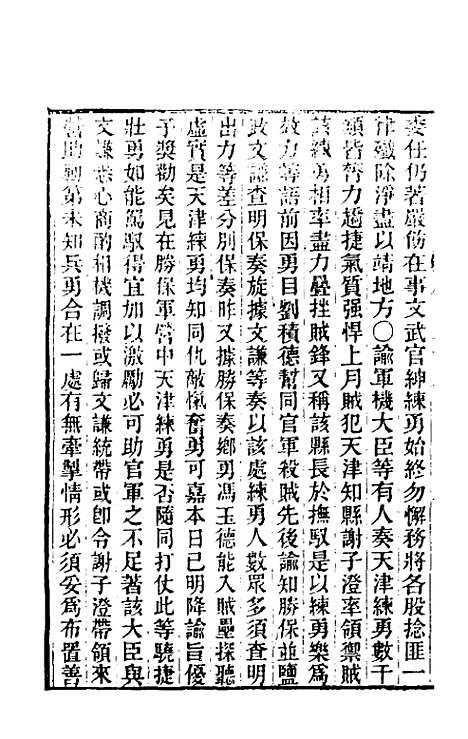 委任仍著嚴飭在事文武官紳練勇始終勿懈務將各股捻匪一
律殲除淨盡以靖地方〇諭軍機大臣等有人奏天津練勇數千
類皆膂力趫捷氣質强悍上月賊犯天津知縣謝子澄率領禦賊
該練勇相率盡力疊挫賊鋒又稱該縣長於撫馭是以練勇樂為
效力等語前因勇目劉積德幫同官軍殺賊先後諭知勝保並鹽
政文謙查明保奏旋據文謙等奏以該處練勇人數眾多須查明
出力等差分別保奏昨又據勝保奏鄉勇馮玉德能入賊壘探聽
虛實是天津練勇均知同仇敵愾奮勇可嘉本日已明降諭旨優
予獎勸矣見在勝保軍營中天津練勇是否隨同打仗此等驍捷
壯勇如能駕馭得宜加以激勵必可助官軍之不足著該大臣與
文謙悉心商酌相機調撥或歸文謙統帶或卽令謝子澄帶領來
營助勦第未知兵勇合在一處有無牽掣情形必須妥爲布置善